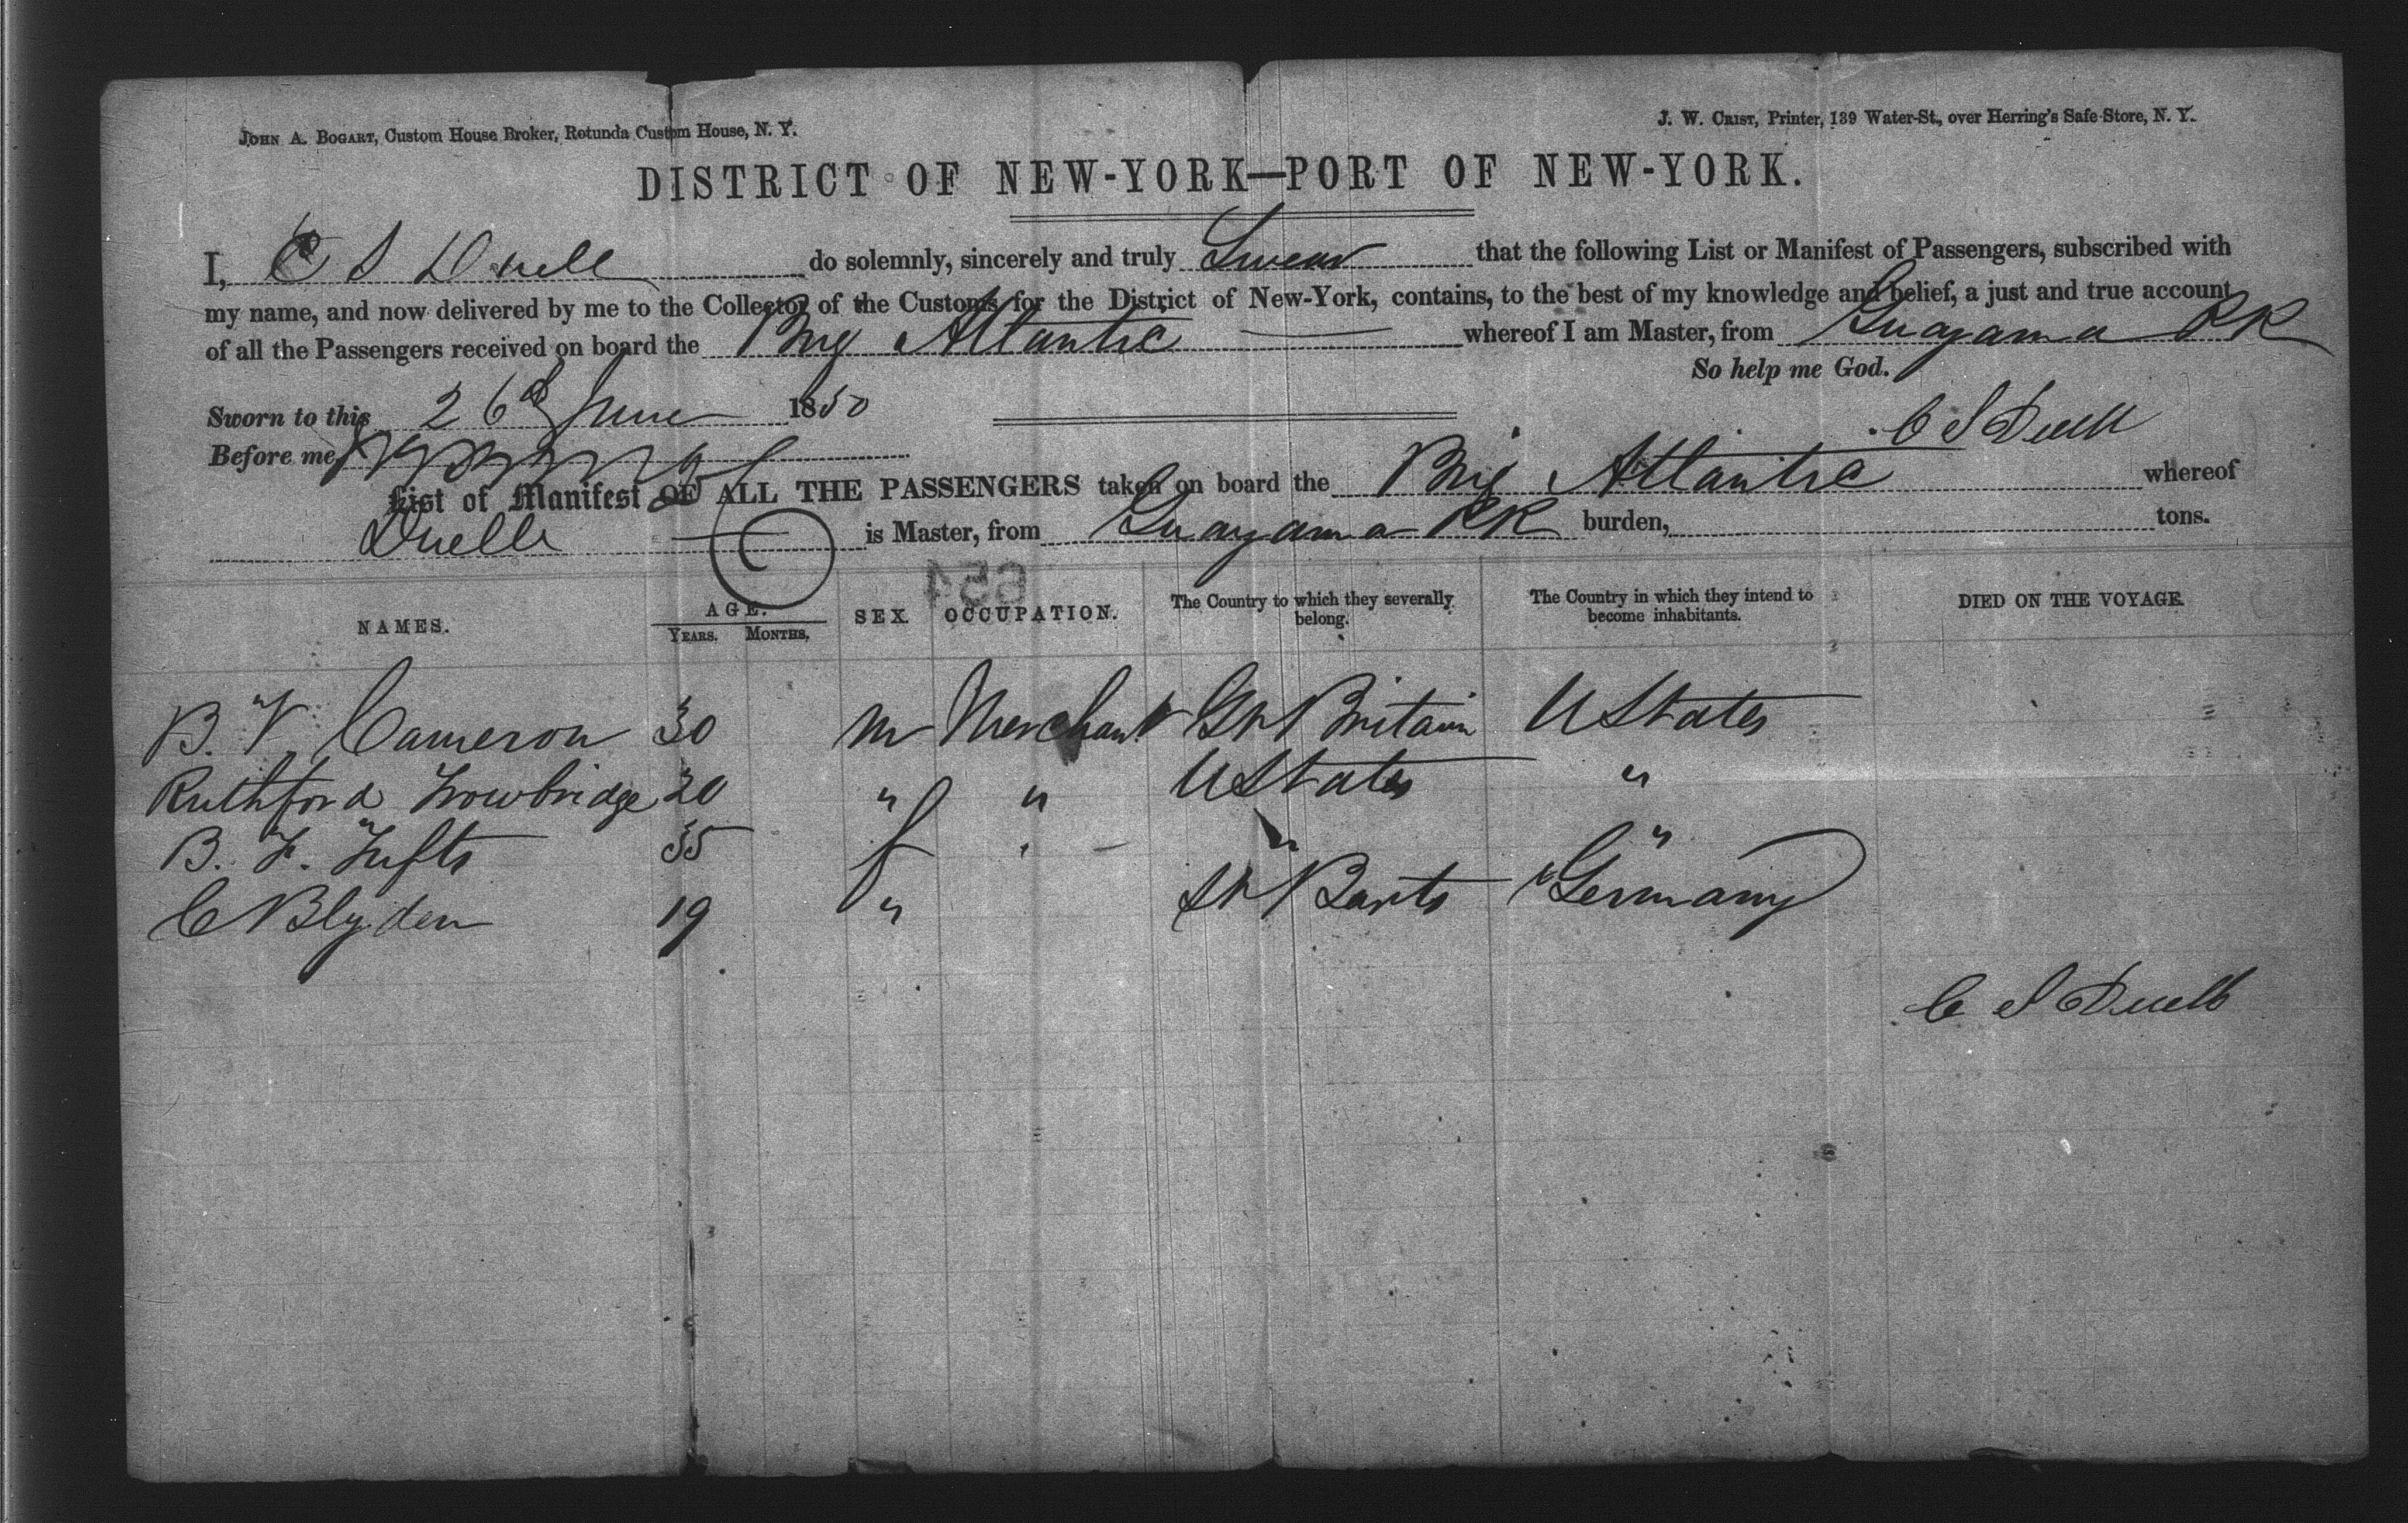 JOHN A. BOGART, Custom House Broker, Rotunda Custom House, N. Y.
J. W. CRIST, Printer, 139 Water-St., over Herring's Safe Store, N. Y.
DISTRICT OF NEW-YORK—PORT OF NEW-YORK.
I, C S Duell do solemnly, sincerely and truly Swear that the following List or Manifest of Passengers, subscribed with
my name, and now delivered by me to the Collector of the Customs for the District of New-York, contains, to the best of my knowledge and belief, a just and true account
of all the Passengers received on board the Brig Atlantic whereof I am Master, from Guayama P R
So help me God.
Sworn to this 26th June 1850
C S Duell
Before me,
List or Manifest OF ALL THE PASSENGERS taken on board the Brig Atlantic whereof
Duelle is Master, from Guayama P R burden, tons.
654
NAMES. AGE. SEX. OCCUPATION. The Country to which they severally belong. The Country in which they intend to become inhabitants. DIED ON THE VOYAGE.
YEARS. MONTHS,
B. V. Cameron 30 m Merchant Gt Britain U States
Ruthford Trowbridge 20 " " U States "
B. F. Tufts 35 f " "
C Blyden 19 " St Barts Germany
C S Duell